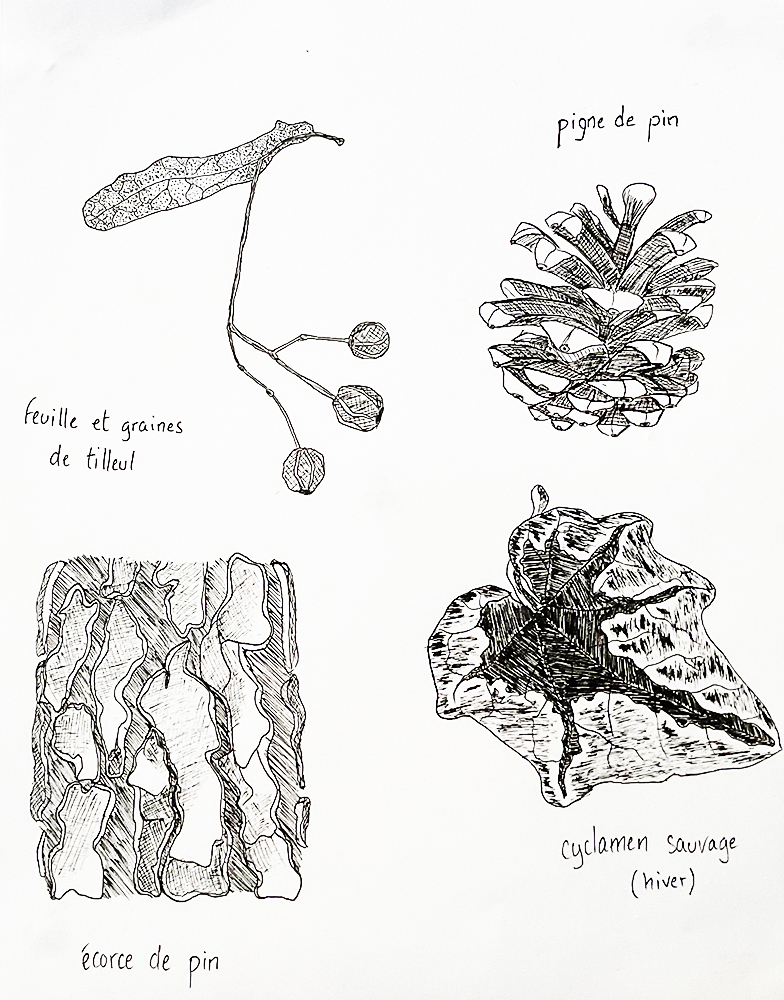 pigne de pin
feuille et graines
de tilleul
cyclamen sauvage
(hiver)
écorce de pin